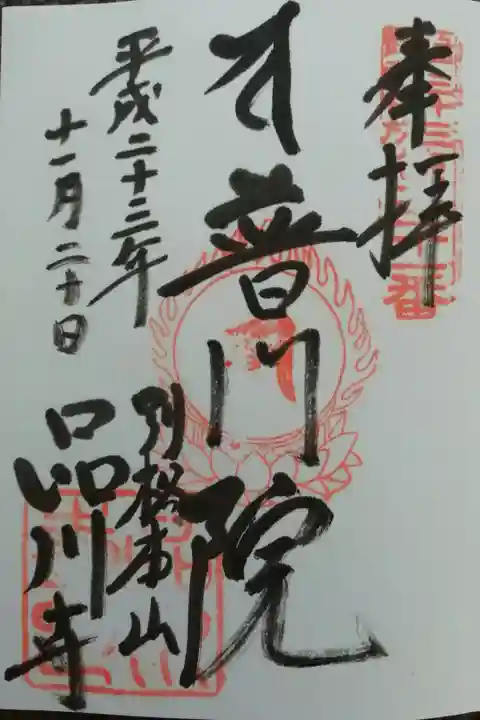 奉拝
普門院
別格本山
品川寺
平成二十三年
十一月二十日